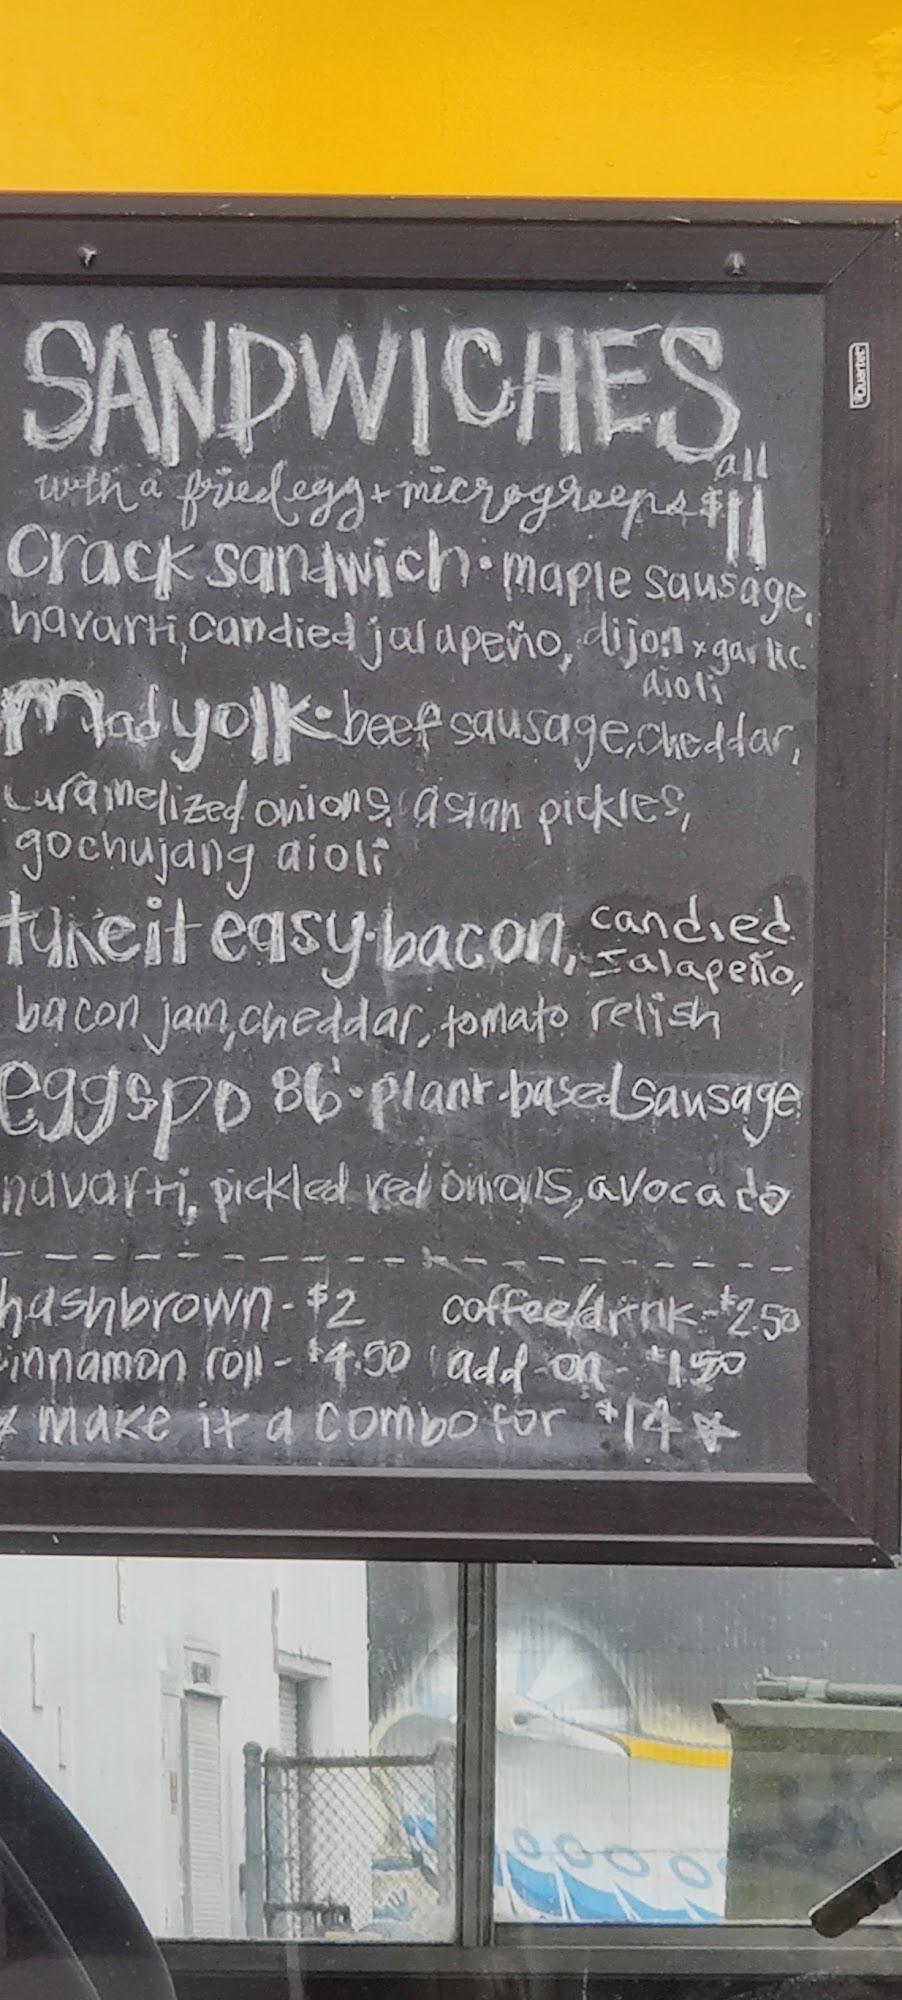 SANDWICHES
with a fried egg + microgreens all $11
crack sandwich · maple sausage,
havarti, candied jalapeño, dijon x garlic
aioli
Mad yolk · beef sausage, cheddar,
caramelized onions, asian pickles,
gochujang aioli
take it easy · bacon, candied
jalapeño,
bacon jam, cheddar, tomato relish
eggspo 86' · plant-based sausage
havarti, pickled red onions, avocado
hashbrown - $2 coffee/drink - $2.50
cinnamon roll - $4.50 add-on - $1.50
* make it a combo for $14 *
Quartet